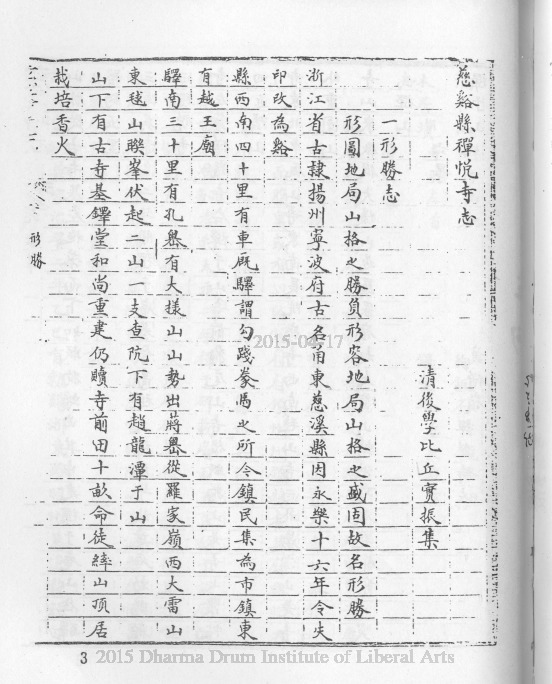 慈谿縣禪悅寺志
清後學比丘實振集
一形勝志
形圖地局山格之勝負形容地局山格之盛固故名形勝
浙江省古隸揚州寧波府古名甬東慈溪縣因永樂十六年令失
印改為谿
縣西南四十里有車厩驛謂勾踐豢馬之所今鎮民集為市鎮東
有越王廟
驛南三十里有孔嶴有大樣山山勢出蔣嶴從羅家嶺西大雷山
東毬山聯峯伏起二山一支查阮下有趙龍潭于山
山下有古寺基鐸堂和尚重建仍贖寺前田十畝命徒緯山頂居
栽培香火
形勝
3
2015-04-17
2015 Dharma Drum Institute of Liberal Arts